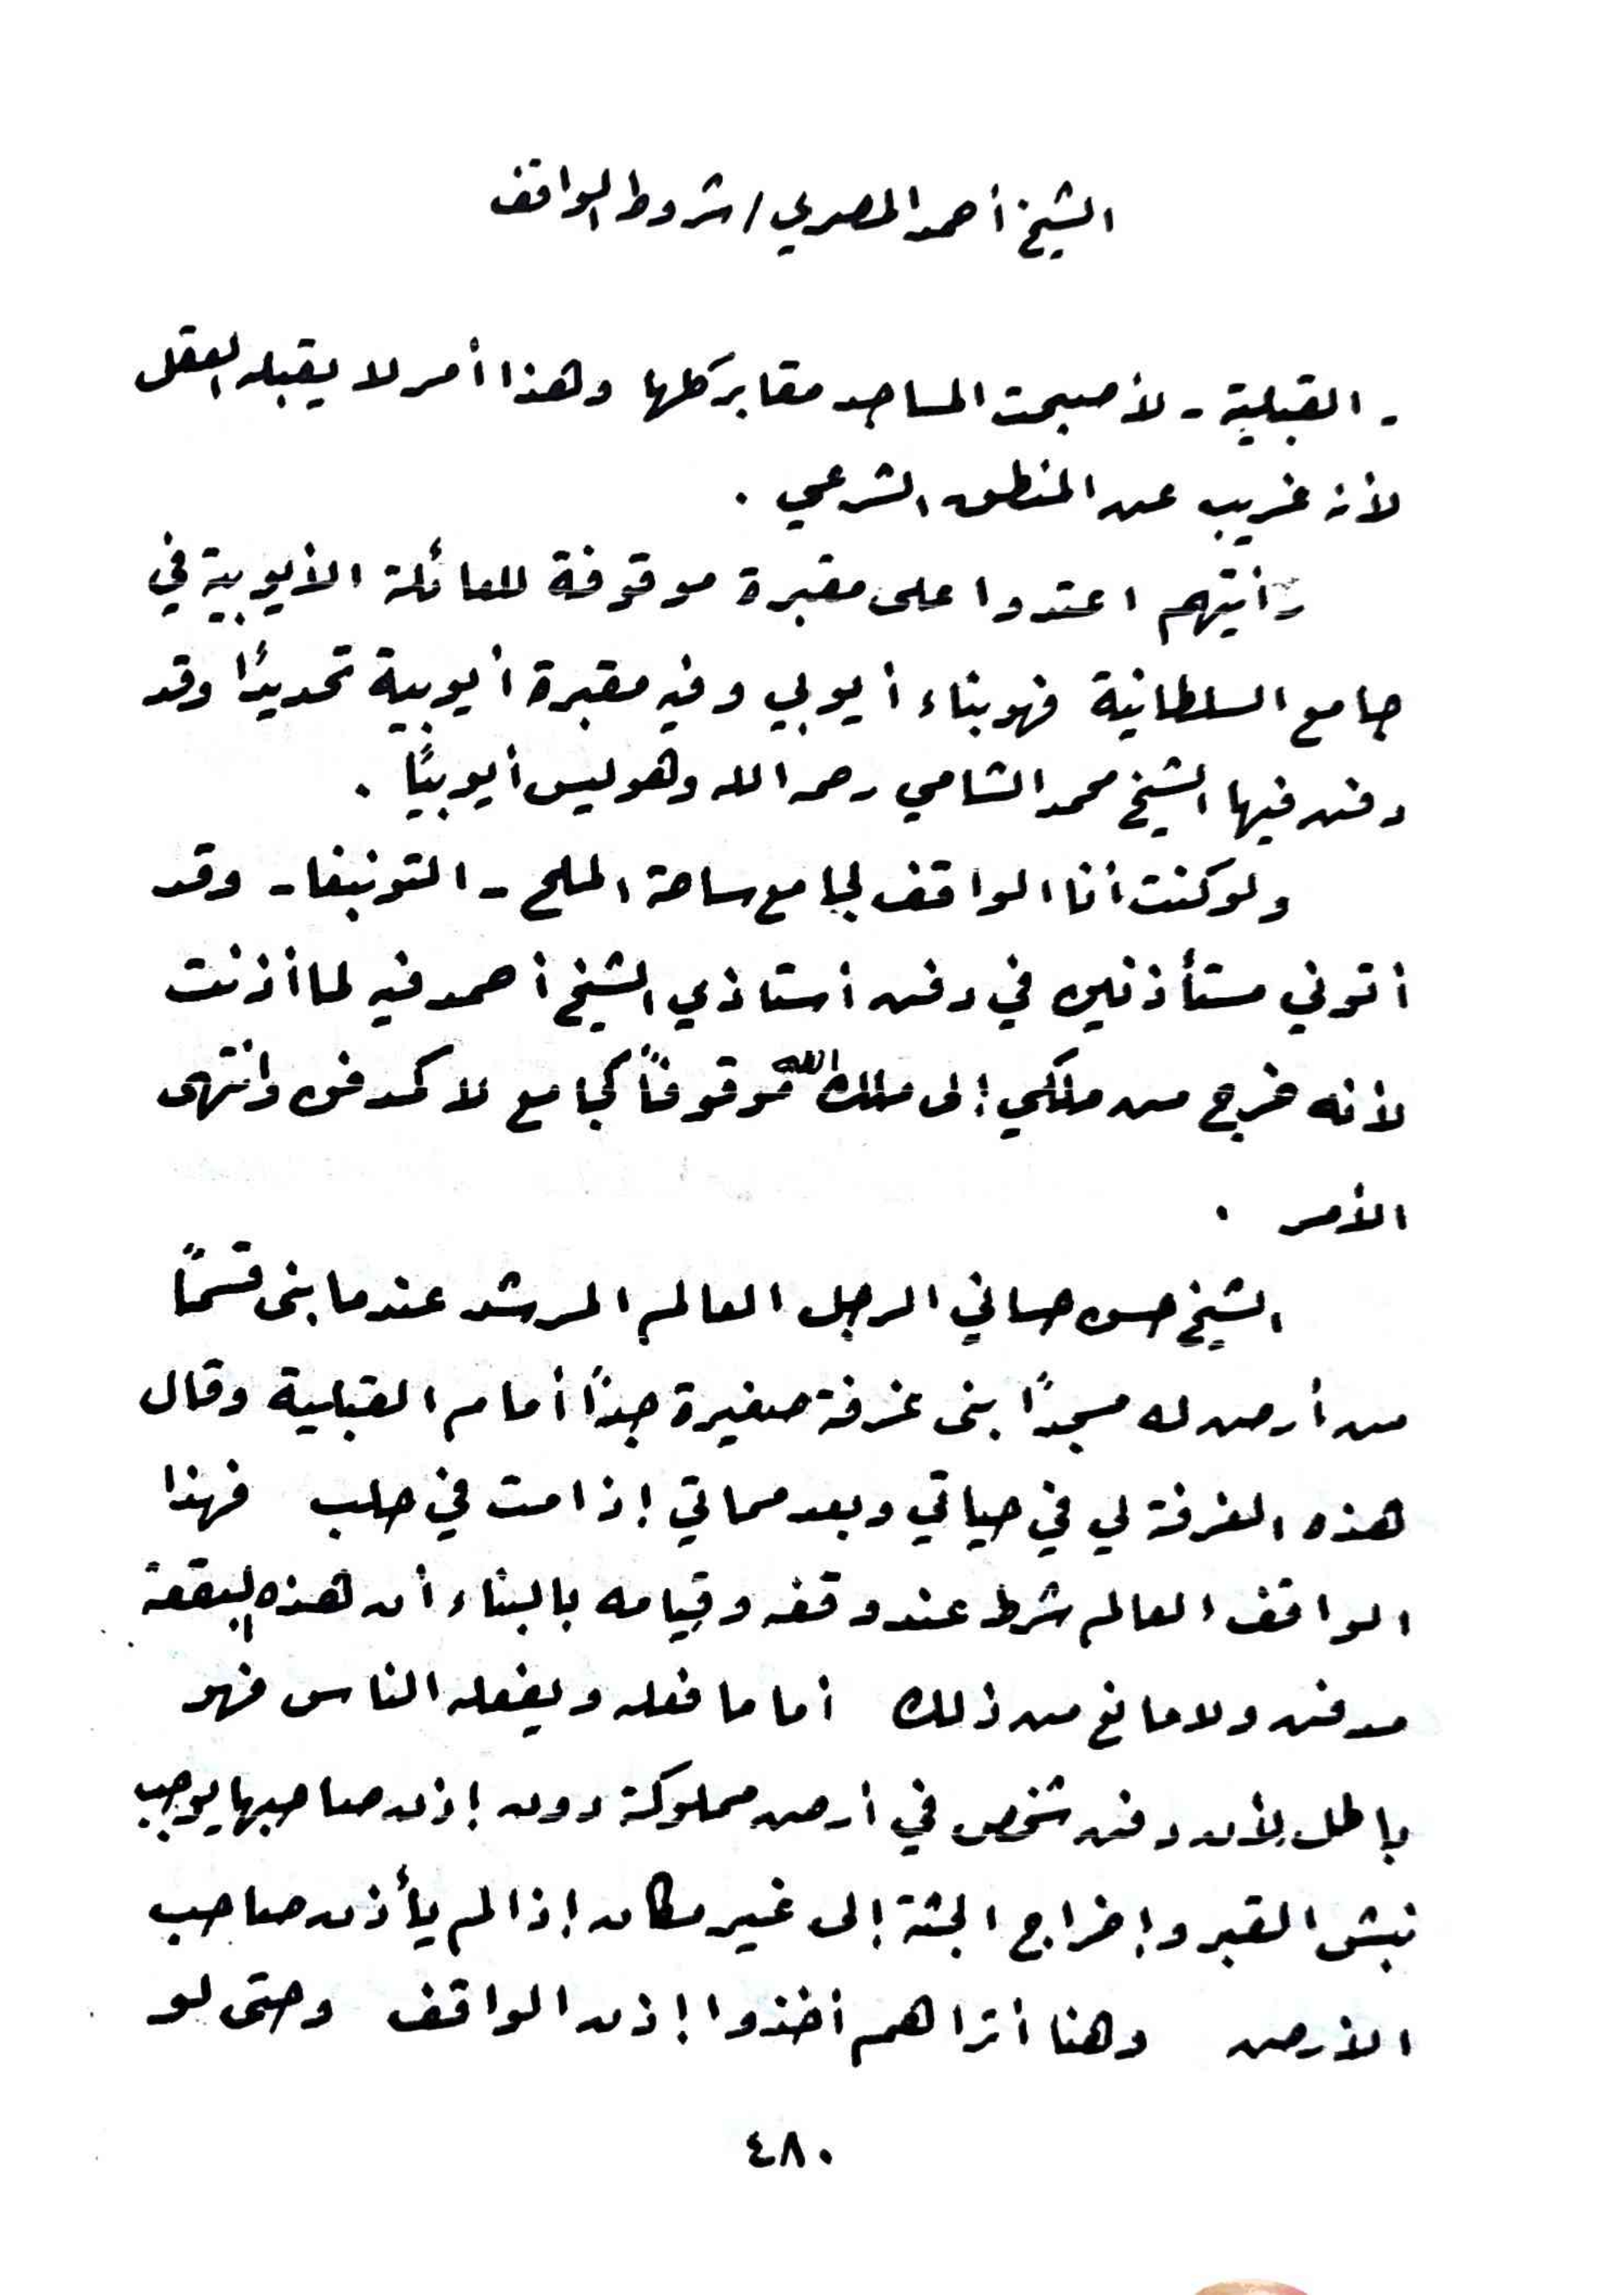 الشيخ أحمد المصري / شروط الواقف
- القبلية - لأصبحت المساجد مقابر كلها وهذا أمر لا يقبله العقل
لأنه غريب عن المنطق الشرعي .
رأيتهم اعتدوا على مقبرة موقوفة للعائلة الأيوبية في
جامع السلطانية فهو بناء أيوبي وفيه مقبرة أيوبية تحديدًا وقد
دفن فيها الشيخ محمد الشامي رحمه الله وهو ليس أيوبيًا .
ولو كنت أنا الواقف لجامع ساحة الملح - التونبغا - وقد
أتوني مستأذنين في دفن أستاذي الشيخ أحمد فيه لما أذنت
لأنه خرج من ملكي إلى ملك الله موقوفًا كجامع لا كمدفن وانتهى
الأمر .
الشيخ حسن حساني الرجل العالم المرشد عندما بنى قسمًا
من أرض له مسجدًا بنى غرفة صغيرة جدًا أمام القبلية وقال
هذه الغرفة لي في حياتي وبعد مماتي إذا مت في حلب فهذا
الواقف العالم شرط عند وقفه وقيامه بالبناء أن هذه البقعة
مدفن ولا مانع من ذلك أما ما فعله ويفعله الناس فهو
باطل لأن دفن شخص في أرض مملوكة دون إذن صاحبها يوجب
نبش القبر وإخراج الجثة إلى غير مكان إذا لم يأذن صاحب
الأرض وهنا أتراهم أخذوا إذن الواقف وحتى لو
٤٨٠